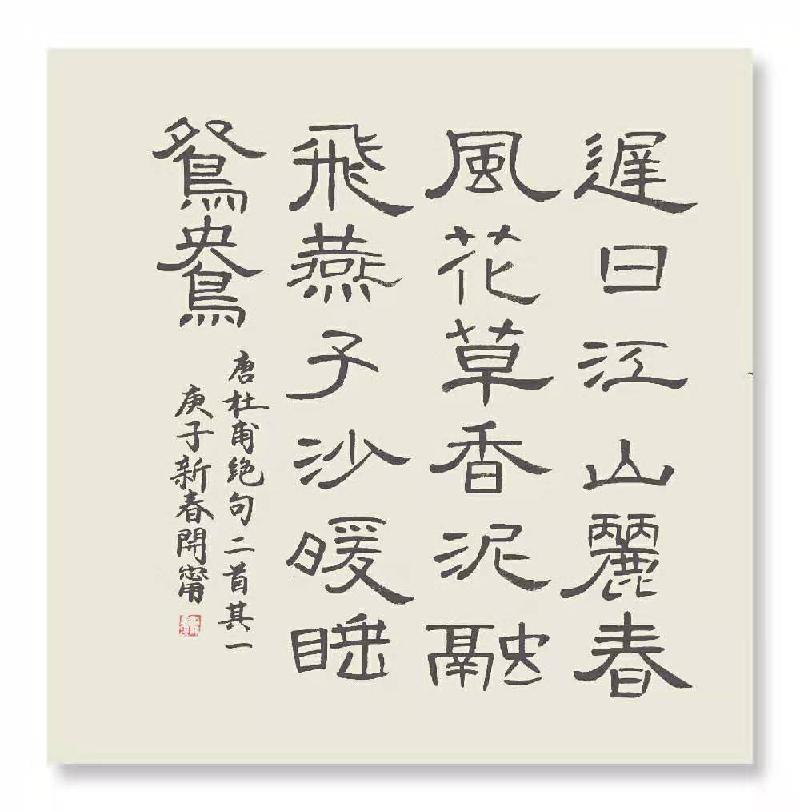 遲日江山麗春
風花草香泥融
飛燕子沙暖睡
鴛鴦
唐杜甫絕句二首其一
庚子新春開甯